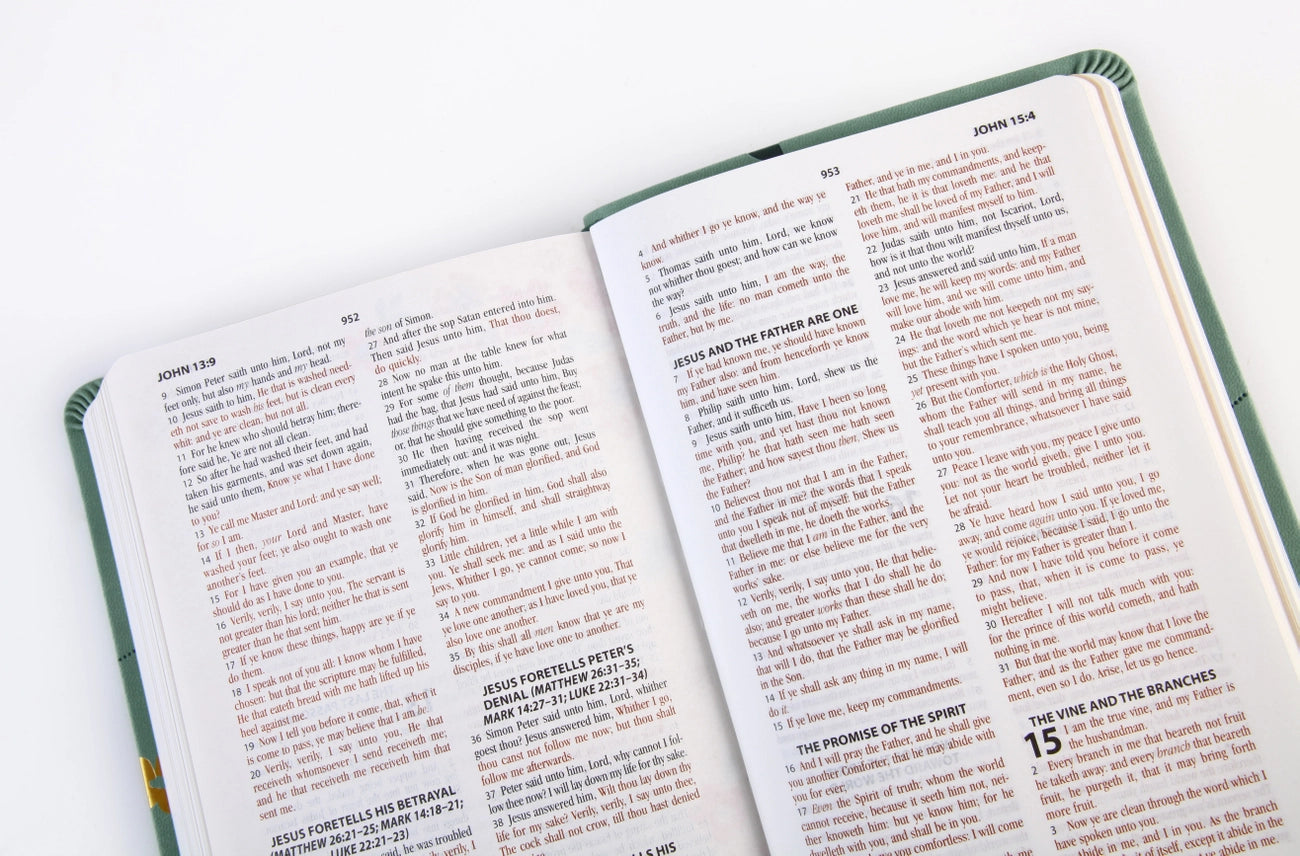 JOHN 13:9
952
9 Simon Peter saith unto him, Lord, not my
feet only, but also my hands and my head.
10 Jesus saith to him, He that is washed need-
eth not save to wash his feet, but is clean every
whit: and ye are clean, but not all.
11 For he knew who should betray him; there-
fore said he, Ye are not all clean.
12 So after he had washed their feet, and had
taken his garments, and was set down again,
he said unto them, Know ye what I have done
to you?
13 Ye call me Master and Lord: and ye say well;
for so I am.
14 If I then, your Lord and Master, have
washed your feet; ye also ought to wash one
another's feet.
15 For I have given you an example, that ye
should do as I have done to you.
16 Verily, verily, I say unto you, The servant is
not greater than his lord; neither he that is sent
greater than he that sent him.
17 If ye know these things, happy are ye if ye
do them.
18 I speak not of you all: I know whom I have
chosen: but that the scripture may be fulfilled,
He that eateth bread with me hath lifted up his
heel against me.
19 Now I tell you before it come, that, when it
is come to pass, ye may believe that I am he.
20 Verily, verily, I say unto you, He that
receiveth whomsoever I send receiveth me;
and he that receiveth me receiveth him that
sent me.
JESUS FORETELLS HIS BETRAYAL
(MATTHEW 26:21–25; MARK 14:18–21;
LUKE 22:21–23)
said, he was troubled
the son of Simon.
27 And after the sop Satan entered into him.
Then said Jesus unto him, That thou doest,
do quickly.
28 Now no man at the table knew for what
intent he spake this unto him.
29 For some of them thought, because Judas
had the bag, that Jesus had said unto him, Buy
those things that we have need of against the feast;
or, that he should give something to the poor.
30 He then having received the sop went
immediately out: and it was night.
31 Therefore, when he was gone out, Jesus
said, Now is the Son of man glorified, and God
is glorified in him.
32 If God be glorified in him, God shall also
glorify him in himself, and shall straightway
glorify him.
33 Little children, yet a little while I am with
you. Ye shall seek me: and as I said unto the
Jews, Whither I go, ye cannot come; so now I
say to you.
34 A new commandment I give unto you, That
ye love one another; as I have loved you, that ye
also love one another.
35 By this shall all men know that ye are my
disciples, if ye have love one to another.
JESUS FORETELLS PETER'S
DENIAL (MATTHEW 26:31–35;
MARK 14:27–31; LUKE 22:31–34)
36 Simon Peter said unto him, Lord, whither
goest thou? Jesus answered him, Whither I go,
thou canst not follow me now; but thou shalt
follow me afterwards.
37 Peter said unto him, Lord, why cannot I fol-
low thee now? I will lay down my life for thy sake.
38 Jesus answered him, Wilt thou lay down thy
life for my sake? Verily, verily, I say unto thee,
The cock shall not crow, till thou hast denied
953
JOHN 15:4
4 And whither I go ye know, and the way ye
know.
5 Thomas saith unto him, Lord, we know
not whither thou goest; and how can we know
the way?
6 Jesus saith unto him, I am the way, the
truth, and the life: no man cometh unto the
Father, but by me.
JESUS AND THE FATHER ARE ONE
7 If ye had known me, ye should have known
my Father also: and from henceforth ye know
him, and have seen him.
8 Philip saith unto him, Lord, shew us the
Father, and it sufficeth us.
9 Jesus saith unto him, Have I been so long
time with you, and yet hast thou not known
me, Philip? he that hath seen me hath seen
the Father; and how sayest thou then, Shew us
the Father?
10 Believest thou not that I am in the Father,
and the Father in me? the words that I speak
unto you I speak not of myself: but the Father
that dwelleth in me, he doeth the works.
11 Believe me that I am in the Father, and the
Father in me: or else believe me for the very
works' sake.
12 Verily, verily, I say unto you, He that belie-
veth on me, the works that I do shall he do
also; and greater works than these shall he do;
because I go unto my Father.
13 And whatsoever ye shall ask in my name,
that will I do, that the Father may be glorified
in the Son.
14 If ye shall ask any thing in my name, I will
do it.
15 If ye love me, keep my commandments.
THE PROMISE OF THE SPIRIT
16 And I will pray the Father, and he shall give
you another Comforter, that he may abide with
you for ever;
17 Even the Spirit of truth; whom the world
cannot receive, because it seeth him not, nei-
ther knoweth him: but ye know him; for he
dwelleth with you, and shall be in you.
you comfortless: I will come
Father, and ye in me, and I in you.
21 He that hath my commandments, and keep-
eth them, he it is that loveth me: and he that
loveth me shall be loved of my Father, and I will
love him, and will manifest myself to him.
22 Judas saith unto him, not Iscariot, Lord,
how is it that thou wilt manifest thyself unto us,
and not unto the world?
23 Jesus answered and said unto him, If a man
love me, he will keep my words: and my Father
will love him, and we will come unto him, and
make our abode with him.
24 He that loveth me not keepeth not my say-
ings: and the word which ye hear is not mine,
but the Father's which sent me.
25 These things have I spoken unto you, being
yet present with you.
26 But the Comforter, which is the Holy Ghost,
whom the Father will send in my name, he
shall teach you all things, and bring all things
to your remembrance, whatsoever I have said
unto you.
27 Peace I leave with you, my peace I give unto
you: not as the world giveth, give I unto you.
Let not your heart be troubled, neither let it
be afraid.
28 Ye have heard how I said unto you, I go
away, and come again unto you. If ye loved me,
ye would rejoice, because I said, I go unto the
Father: for my Father is greater than I.
29 And now I have told you before it come
to pass, that, when it is come to pass, ye
might believe.
30 Hereafter I will not talk much with you:
for the prince of this world cometh, and hath
nothing in me.
31 But that the world may know that I love the
Father; and as the Father gave me command-
ment, even so I do. Arise, let us go hence.
THE VINE AND THE BRANCHES
15 I am the true vine, and my Father is
the husbandman.
2 Every branch in me that beareth not fruit
he taketh away: and every branch that beareth
fruit, he purgeth it, that it may bring forth
more fruit.
3 Now ye are clean through the word which I
have spoken unto you.
abide in me, and I in you. As the branch
of itself, except it abide in the